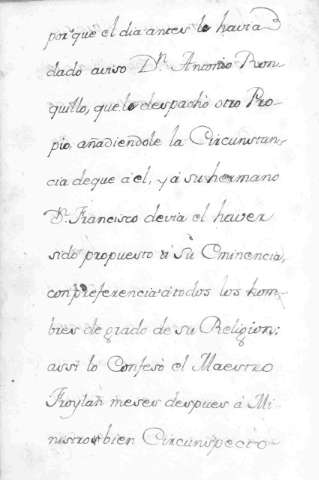 porque el dia antes lo havia
dado aviso Dn. Antonio Ron-
quillo, que le despachó otro Pro-
pio, añadiendole la Circunstan-
cia de que à el, y á su hermano
Dn. Francisco devia el haver
sido propuesto à su Eminencia,
con preferencia à todos los hom-
bres de grado de su Religion:
assi lo Confesò el Maestro
Froylan meses despues à Mi-
nistro bien Circunspecto